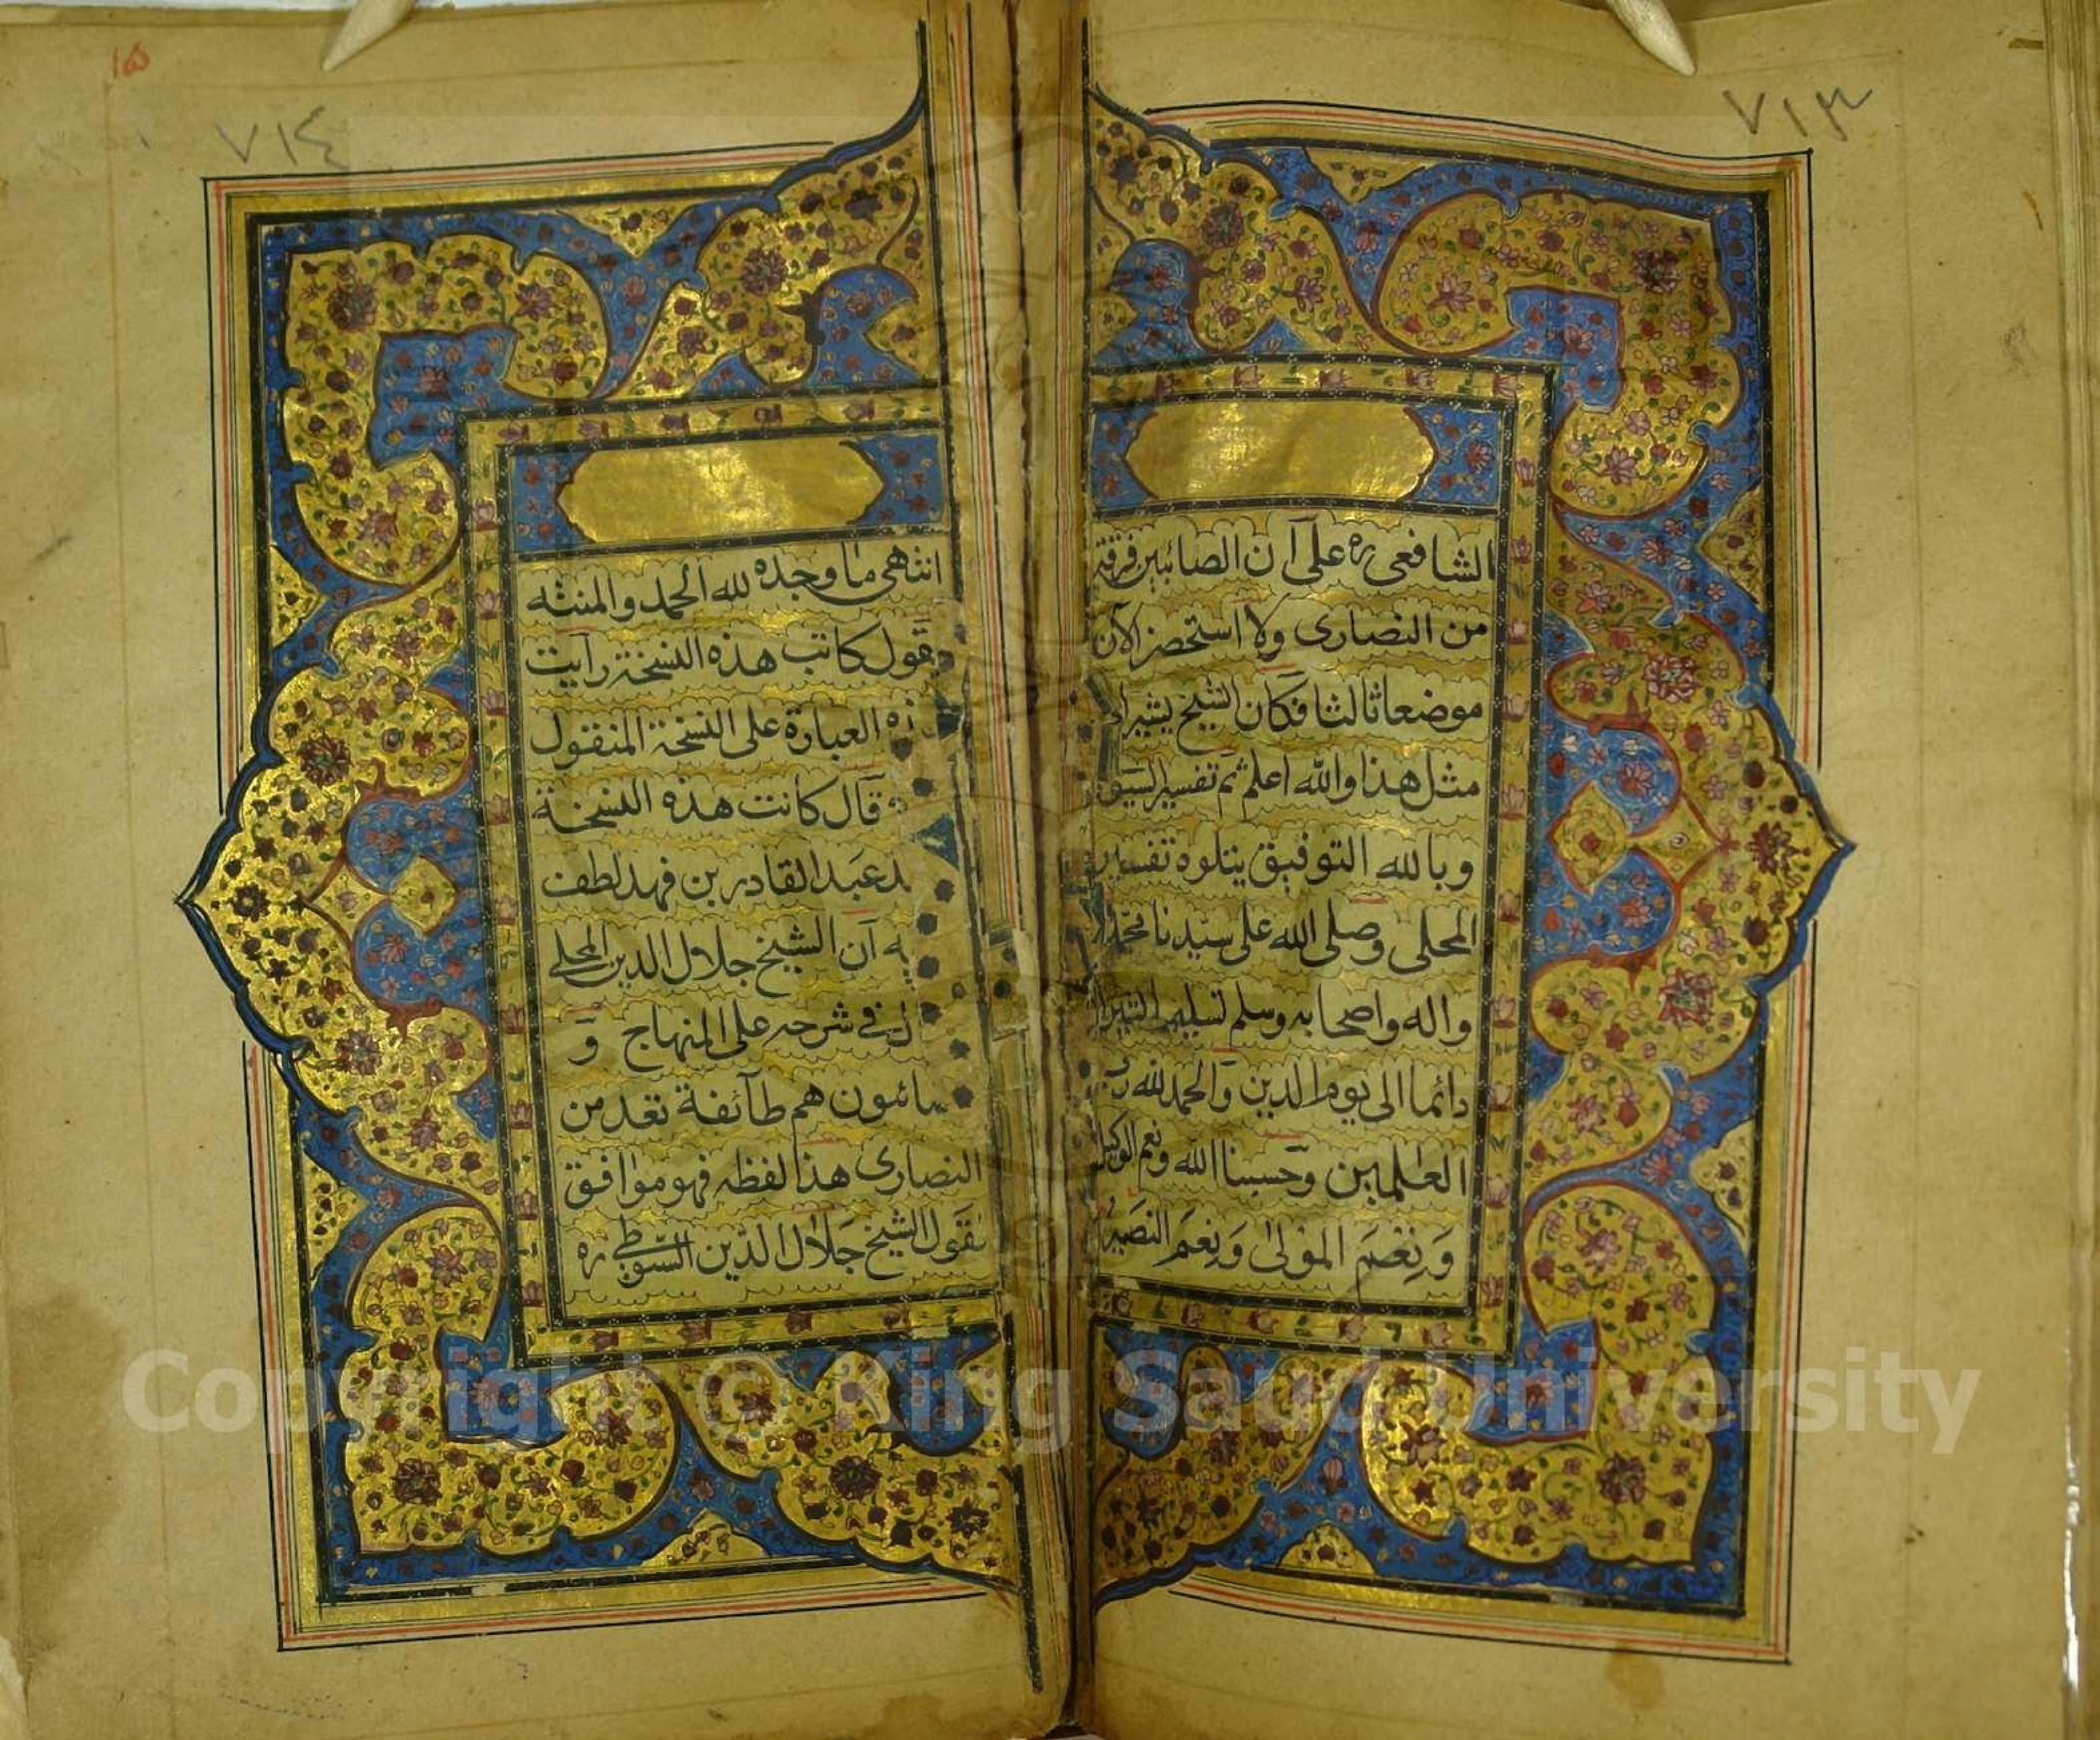 ٧١٣
الشافعى ره على آن الصائبين فرقة
من النصارى ولا استحضر الآن
موضعا ثالثا فكان الشيخ يشير الى
مثل هذا والله اعلم ثم تفسير
وبالله التوفيق يتلوه تفسير
المحلى وصلى الله على سيدنا محمد
واله واصحابه وسلم تسليما
دائما الى يوم الدين والحمد لله رب
العلمين وحسبنا الله ونعم الوكيل
وَنِعْمَ المَوْلىٰ وَنِعْمَ النَصَيْرُ
١٥
٧١٤
انتهى ما وجده لله الحمد والمنته
يقول كاتب هذه النسخة رايت
العبارة على النسخة المنقول
قال كانت هذه النسخة
عبد القادر بن فهد لطف
آن الشيخ جلال الدين المحلى
فى شرحه على المنهاج وَ
هم طآئفة تعد من
النصارى هذا لفظه فهو موافق
لقول الشيخ جلال الدين السيوطى ره
Copyright © King Saud University